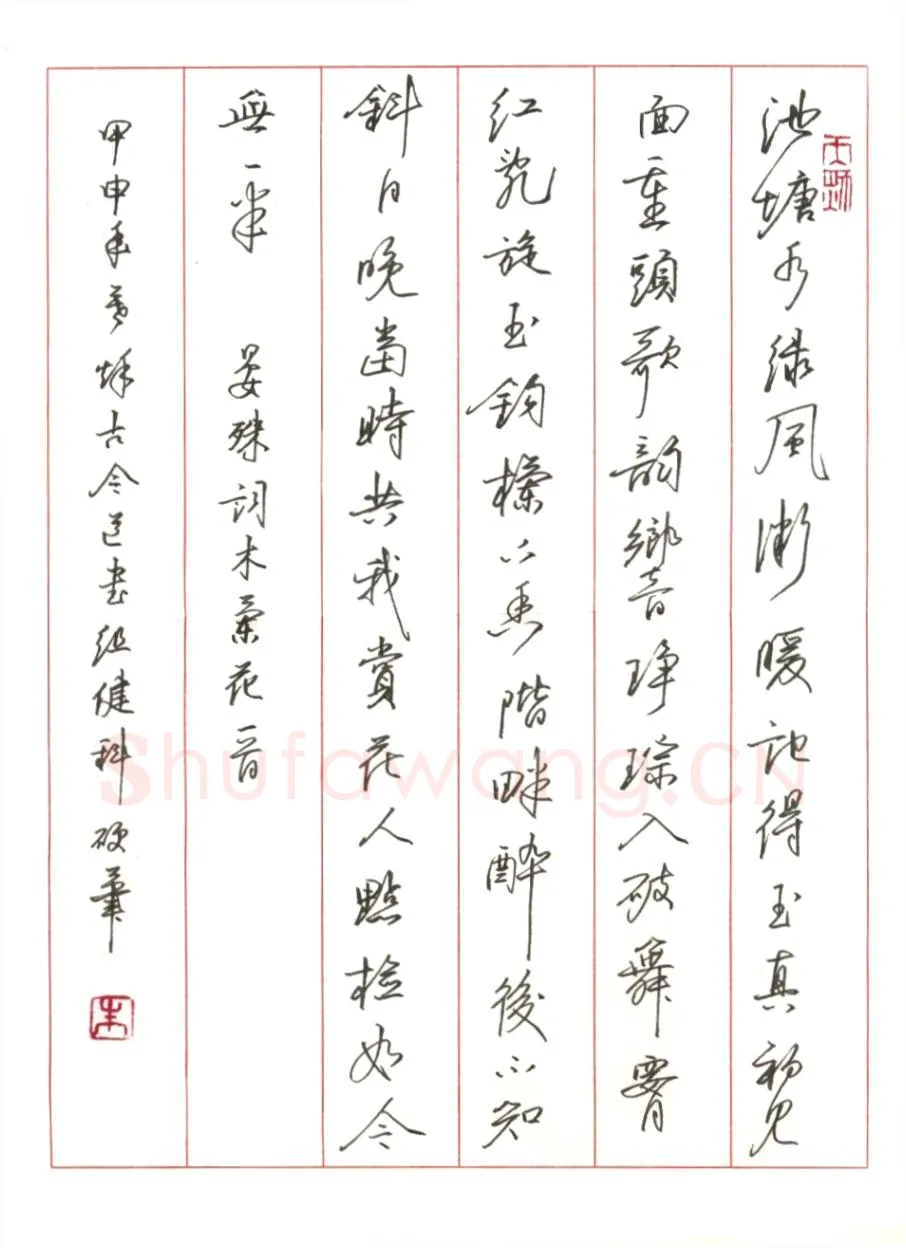 池塘水綠風微暖記得玉真初見
面重頭歌韻響琤琮入破舞腰
紅亂旋玉鉤欄下香階畔醉後不知
斜日晚當時共我賞花人點檢如今
無一半 晏殊詞木蘭花一首
甲申年秋古今書健科硬筆
Shufawang.CN